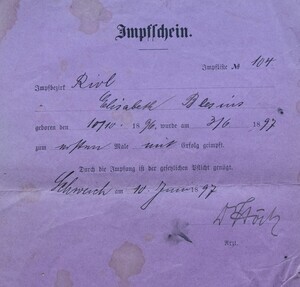 Impfschein.
Impfliste № 104
Impfbezirk Riol
Elisabeth Blesius
geboren den 10/10 1896, wurde am 3/6 1897
zum ersten Male mit Erfolg geimpft.
Durch die Impfung ist der gesetzlichen Pflicht genügt.
Schweich am 10 Juni 1897
Arzt.